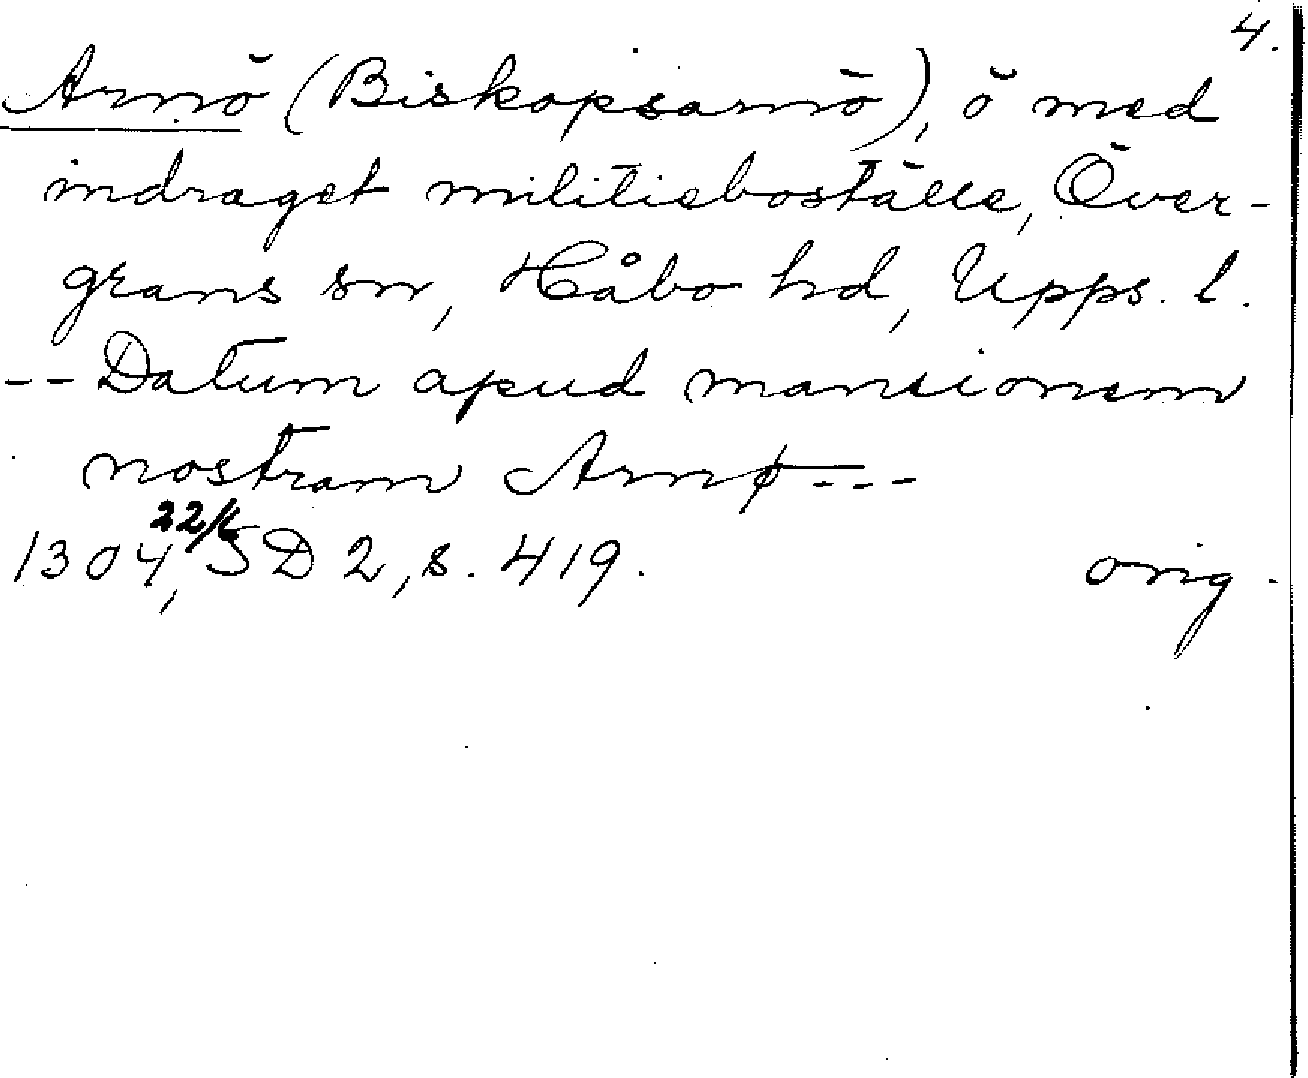 4.
Arnö (Biskopsarnö), ö med
indraget militieboställe, Över-
grans sn, Håbo hd, Upps. l.
-- Datum apud mansionem
nostram Arnø ---
1304 22/6, SD 2, s. 419. orig.